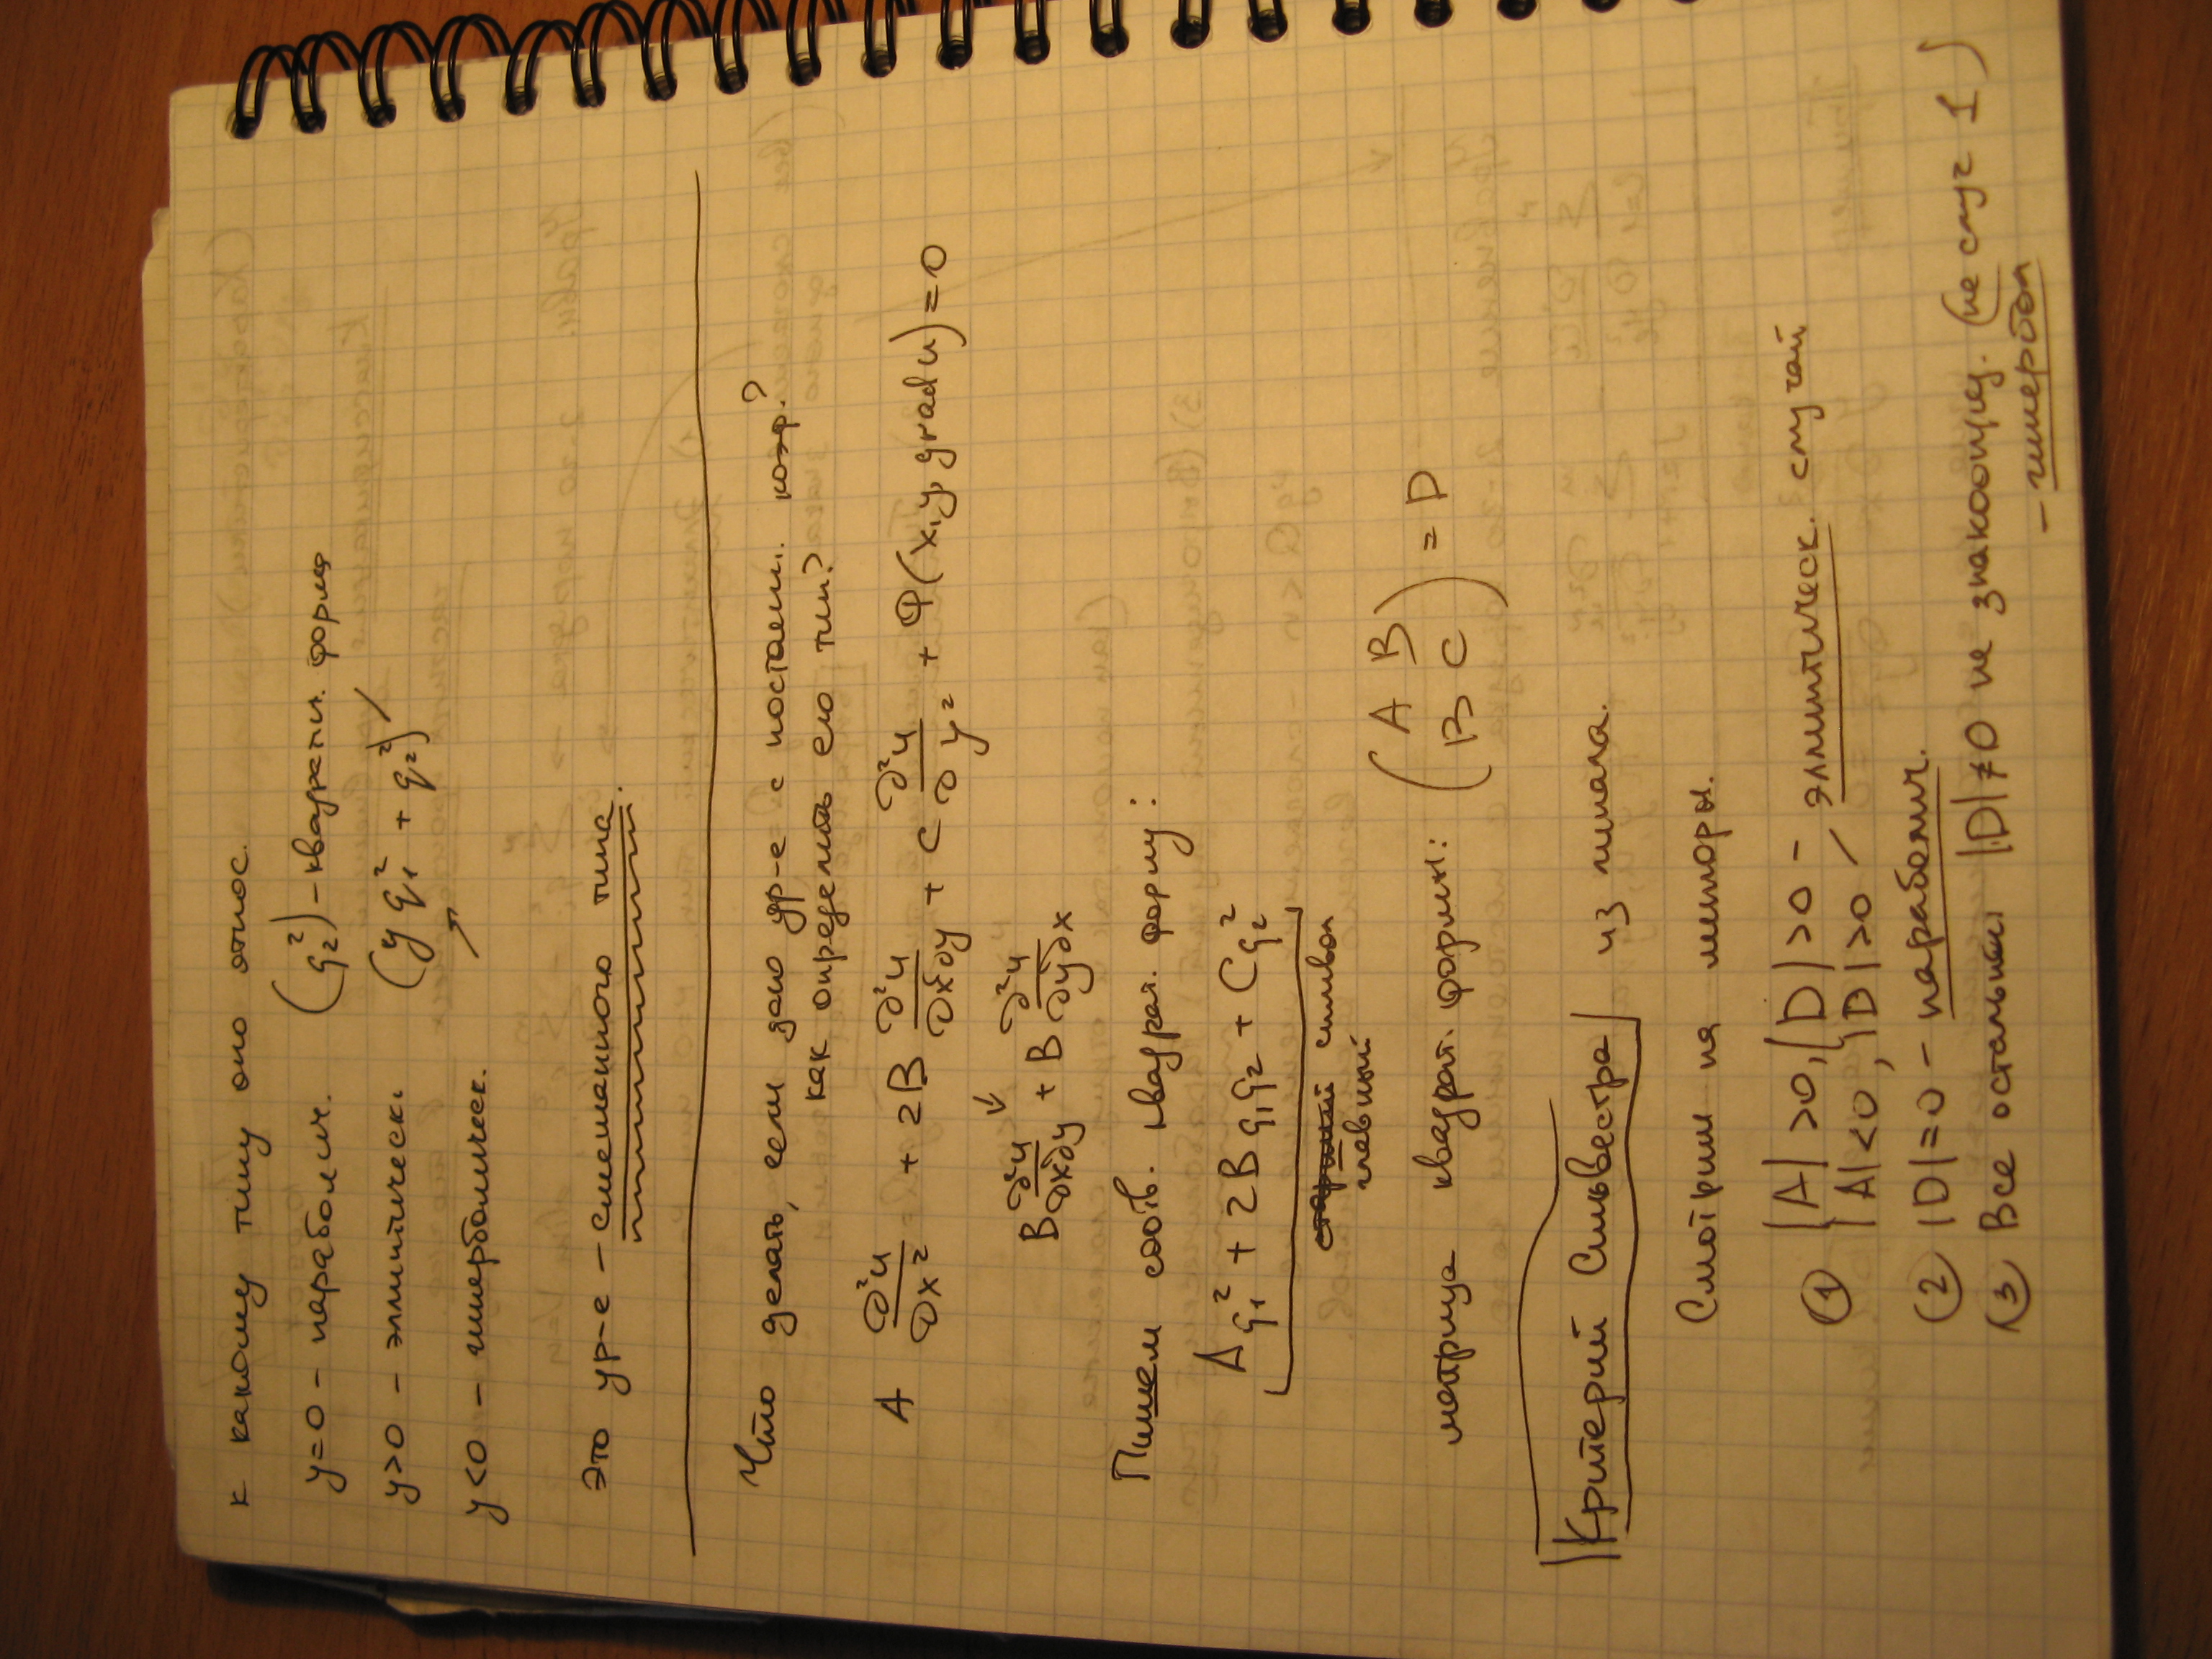 к какому типу оно относ.
y=0 – параболич. (q₂²) – квадратн. форма
y>0 – эллиптическ. (y q₁² + q₂²)
y<0 – гиперболическ.
это ур-е – смешанного типа.
Что делать, если дано ур-е с постоянн. коэф.?
как определить его тип?
A ∂²u/∂x² + 2B ∂²u/∂x∂y + C ∂²u/∂y² + Φ(x,y,grad u) = 0
B ∂²u/∂x∂y + B ∂²u/∂y∂x
Пишем соотв. квадрат. форму:
A q₁² + 2B q₁q₂ + C q₂²
старший символ
главный
матрица квадрат. формы: (A B
B C) = D
Критерий Сильвестра из
Смотрим на миноры.
① |A|>0, |D|>0 – эллиптическ. случай
|A|<0, |D|>0
② |D|=0 – параболич.
③ Все остальные |D|≠0 не знакоопред. (не случ 1)
– гипербол